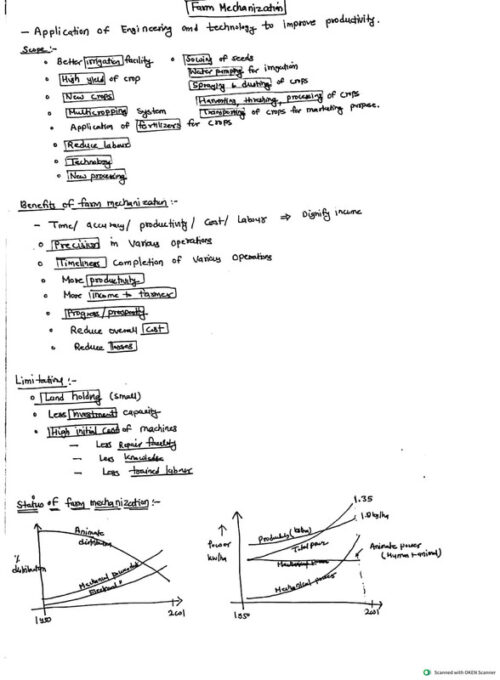 Farm Mechanization
- Application of Engineering and technology to improve productivity.
Scope :-
• Better irrigation facility
• High yield of crop
• New crops
• Multicropping System
• Application of fertilizers for crops
• Reduce labour
• Technology
• New processing
• Sowing of seeds
Water pumping for irrigation
Spraying & dusting of crops
Harvesting, threshing, processing of crops
Transporting of crops for marketing purpose.
Benefits of farm mechanization :-
- Time/ accuracy/ productivity/ Cost/ Labour ⇒ Dignify income
• Precision in various operations
• Timeliness completion of various operations
• More productivity
• More income to farmer
• Progress/prosperity
• Reduce overall cost
• Reduce losses
Limitating :-
• Land holding (small)
• Less investment capacity
• High initial cost of machines
- Less Repair facility
- Less knowledge
- Less trained labour
Status of farm mechanization :-
Animate
distribution
%
distribution
Mechanical
Electrical
2001
1.35
Total power
↑
Power
kw/ha
Animate power
(Human + animal)
Mechanical power
2001
Scanned with OKEN Scanner